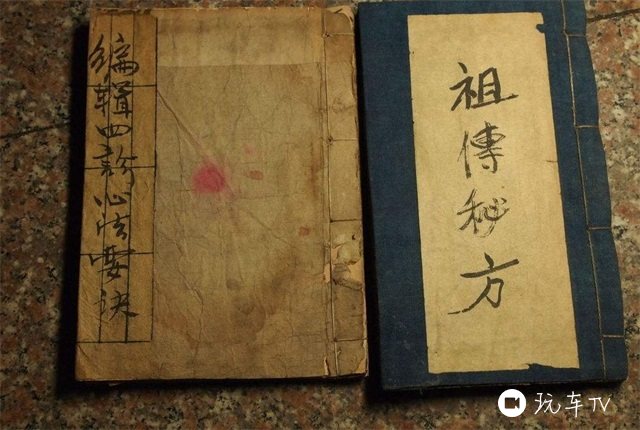 编辑四診心法要诀
祖傳秘方
玩车TV